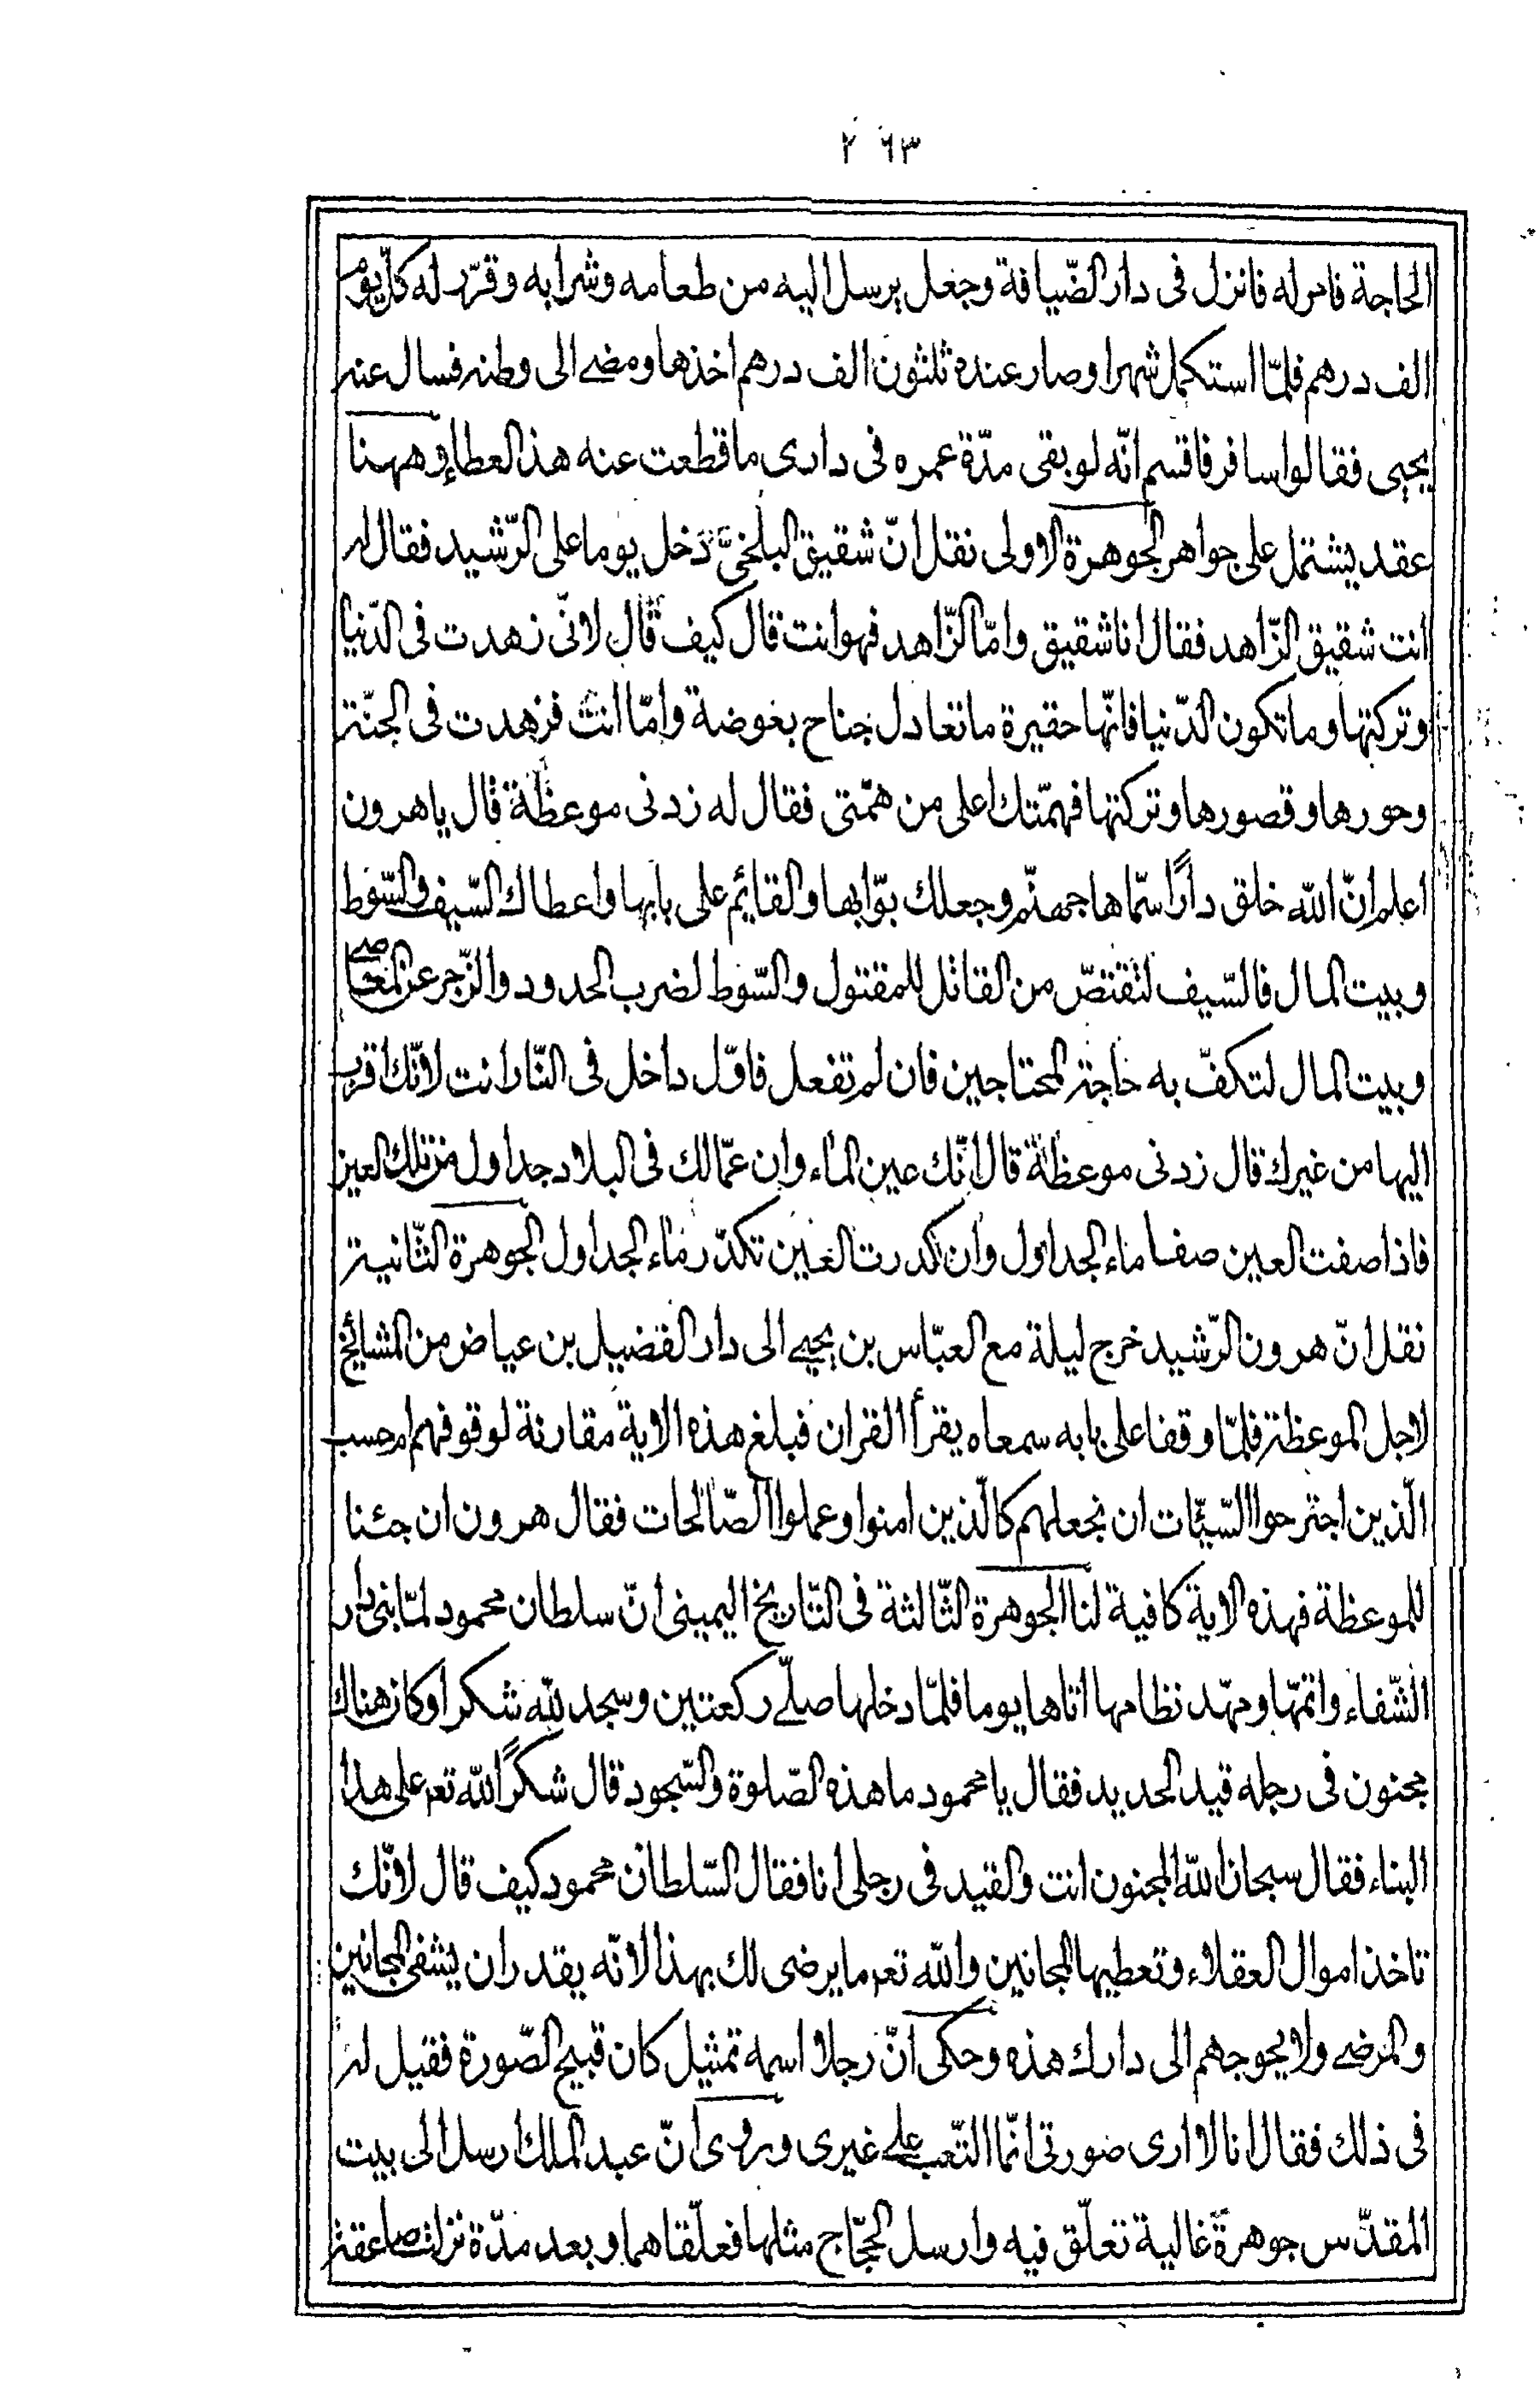 ٢٦٣
الحاجة فامر له فانزل فى دار الضّيافة وجعل يرسل اليه من طعامه وشرابه وقرّر له كلّ يوم
الف درهم فلمّا استكمل شهرا وصار عنده ثلثون الف درهم اخذها ومضے الى وطنه فسال عنه
يحيى فقالوا سافر فاقسم انّه لو بقى مدّة عمره فى دارى ما قطعت عنه هذ العطاء وههنا
عقد يشتمل على جواهر الجوهرة الاولى نقل انّ شقيق البلخىّ دخل يوما على الرّشيد فقال له
انت شقيق الزّاهد فقال انا شقيق وامّا الزّاهد فهو انت قال كيف قال لانّى زهدت فى الدّنيا
وتركتها وما تكون الدّنيا فانّها حقيرة ما تعادل جناح بغوضة وامّا انت فزهدت فى الجنّة
وحورها وقصورها وتركتها فهمّتك اعلى من همّتى فقال له زدنى موعظة قال يا هرون
اعلم انّ الله خلق دارًا سمّاها جهنّم وجعلك بوّابها والقايم على بابها واعطاك السّيف والسّوط
وبيت المال فالسّيف لتقتصّ من القاتل للمقتول والسّوط لضرب الحدود والزّجر عن المعاصے
وبيت المال لتكفّ به حاجة المحتاجين فان لم تفعل فاوّل داخل فى النّار انت لانّك اقرب
اليها من غيرك قال زدنى موعظة قال انّك عين الماء وان عمّالك فى البلاد جداول من تلك العين
فاذا صفت العين صفا ماء الجداول وان كدرت العين تكدّر ماء الجداول الجوهرة الثّانية
نقل انّ هرون الرّشيد خرج ليلة مع العبّاس بن يحيے الى دار الفضيل بن عياض من المشايخ
لاجل الموعظة فلمّا وقفا على بابه سمعاه يقرأ القران فبلغ هذه الاية مقارنة لوقوفهم ام حسب
الّذين اجترحوا السّيّئات ان نجعلهم كالّذين امنوا وعملوا الصّالحات فقال هرون ان جئنا
للموعظة فهذه الاية كافية لنا الجوهرة الثّالثة فى التّاريخ اليمينى انّ سلطان محمود لمّا بنى دار
الشّفاء واتمّها ومهّد نظامها اتاها يوما فلمّا دخلها صلّے ركعتين وسجد للّه شكرا وكان هناك
مجنون فى رجله قيد الحديد فقال يا محمود ما هذه الصّلوة والسّجود قال شكرًا للّه تعم على هذا
البناء فقال سبحان اللّه المجنون انت والقيد فى رجلى انا فقال السّلطان محمود كيف قال لانّك
تاخذ اموال العقلاء وتعطيها المجانين واللّه تعم ما يرضى لك بهذا لانّه يقدر ان يشفى المجانين
والمرضے ولا يحوجهم الى دارك هذه وحكى انّ رجلا اسمه تمثيل كان قبيح الصّورة فقيل له
فى ذلك فقال انا لا ارى صورتى انّما التّعب علے غيرى وروى انّ عبد الملك ارسل الى بيت
المقدّس جوهرة غالية تعلّق فيه وارسل الحجّاج مثلها فعلّقاهما وبعد مدّة نزلت صاعقة